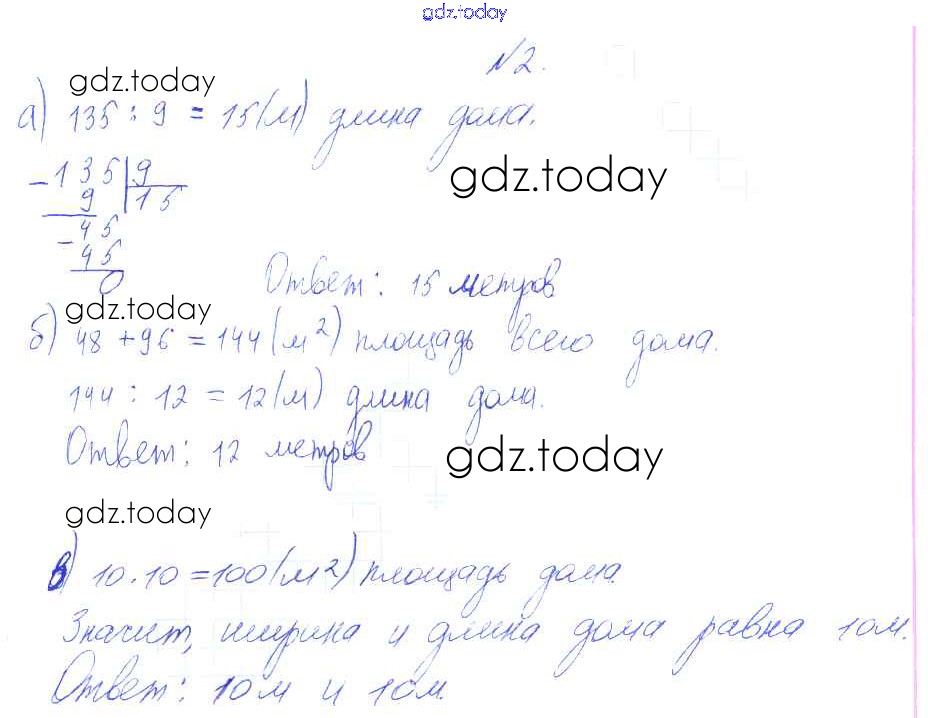 gdz.today
№2.
gdz.today
а) 135 : 9 = 15(м) длина дома.
- 135 | 9
9 | 15
gdz.today
- 45
45
0
Ответ: 15 метров
gdz.today
б) 48 + 96 = 144 (м²) площадь всего дома.
144 : 12 = 12(м) длина дома.
Ответ: 12 метров
gdz.today
gdz.today
в) 10 · 10 = 100(м²) площадь дома
Значит, ширина и длина дома равна 10м.
Ответ: 10м и 10м.